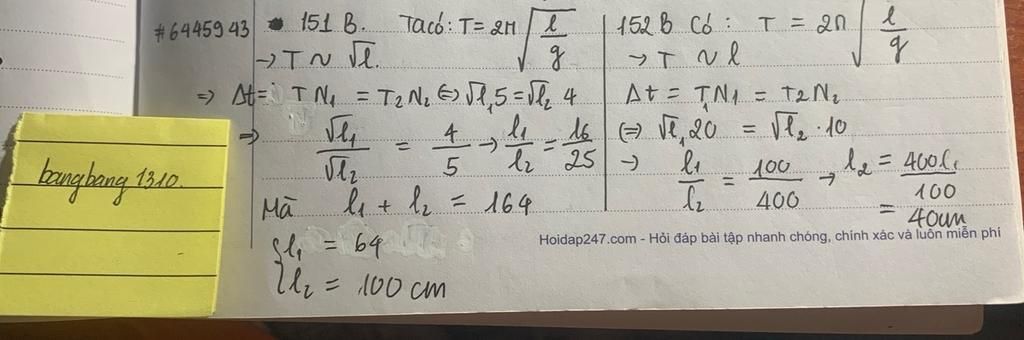 #6445943
151 B. Ta có: T = 2π√(l/g)
→ T ~ √l.
=> Δt = TN₁ = T₂N₂ <=> √l₁5 = √l₂ 4
=> √l₁/√l₂ = 4/5 → l₁/l₂ = 16/25
Mà l₁ + l₂ = 164
{ l₁ = 64
l₂ = 100 cm
152 B Có: T = 2π√(l/g)
→ T ~ l
Δt = T₁N₁ = T₂N₂
(=) √l₁20 = √l₂ . 10
→ l₁/l₂ = 100/400 → l₂ = 400l₁/100
= 40cm
bangbang1310.
Hoidap247.com - Hỏi đáp bài tập nhanh chóng, chính xác và luôn miễn phí